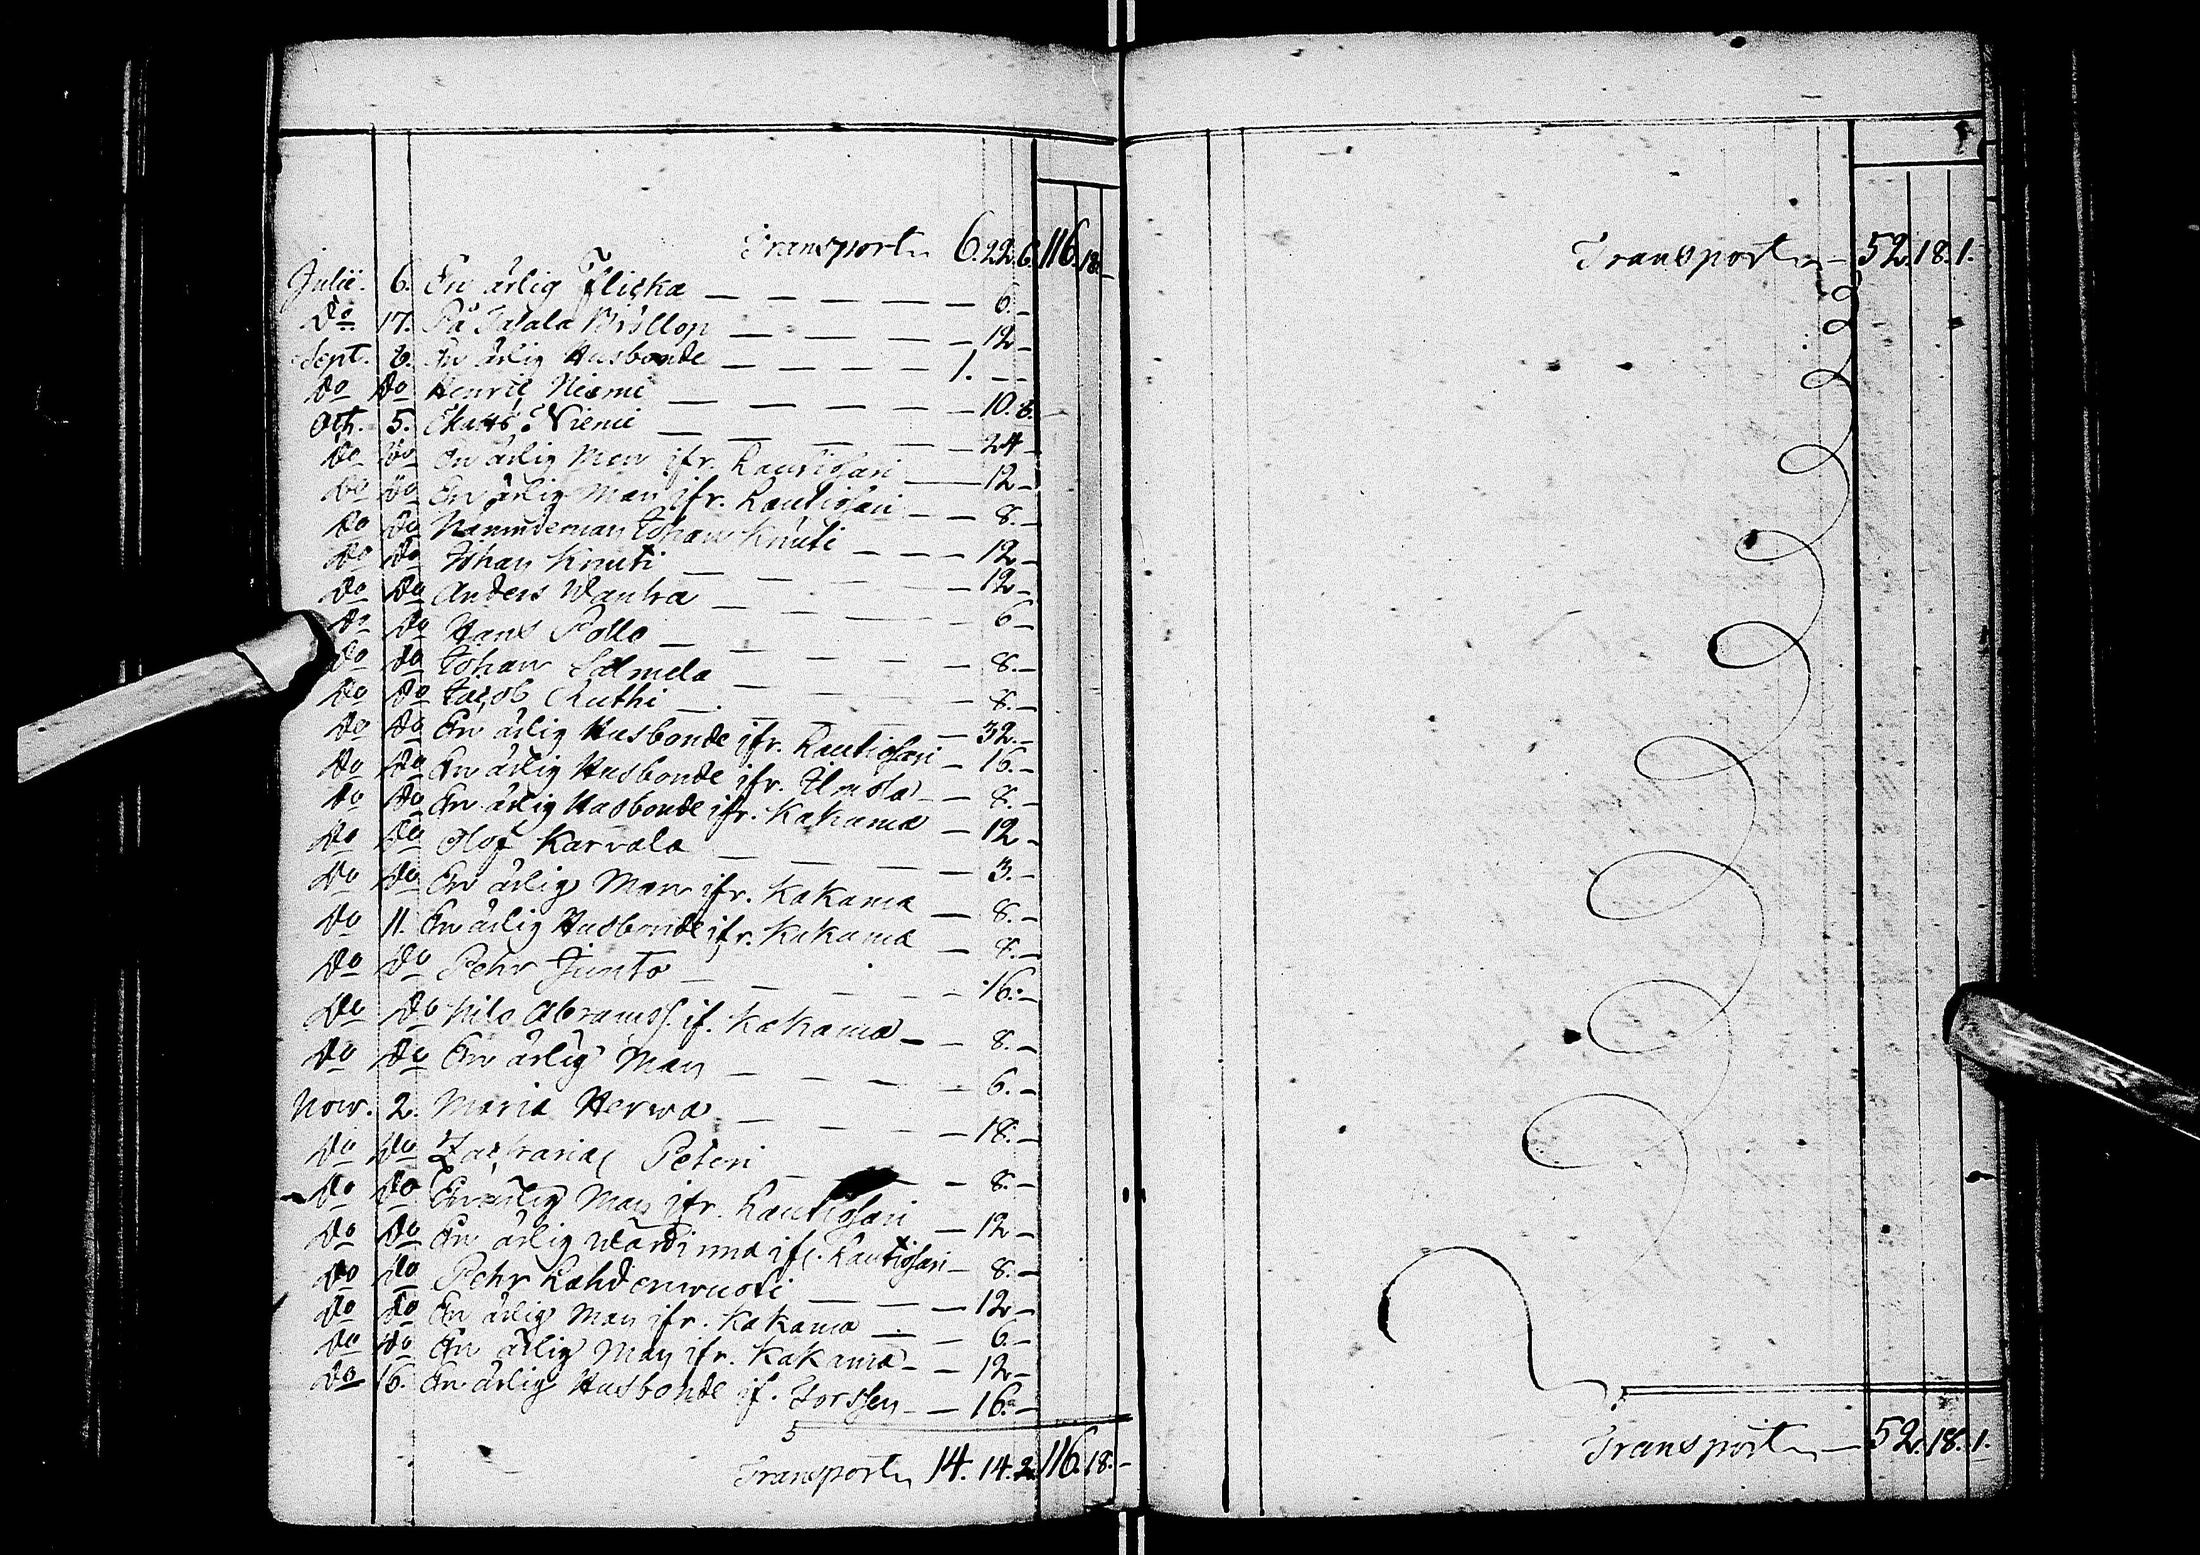 Transport 6. 22. 6. 116. 18. –
Julii. 6. En ärlig Flicka — 6. –
Do 17. På Jatala Bröllop — 12 –
Sept. 6. En ärlig Husbonde — 1. – –
Do Do Henric Niemi — 10. 8.
Oct. 5. Niemi — 24 –
Do Do En ärlig Man ifr. Rautiosari — 12 –
Do Do En ärlig Man ifr. Rautiosari — 8. –
Do Do Nämndeman Johan Knuti — 12 –
Do Do Johan Knuti — 12 –
Do Do Anders Wanha — 6 –
Do Do Hans Rollo — 8. –
Do Do Johan Salmela — 8. –
Do Do Jacob Ruthi — 32. –
Do Do En ärlig Husbonde ifr. Rautiosari — 16. –
Do Do En ärlig Husbonde ifr. Ilmola — 8. –
Do Do En ärlig Husbonde ifr. Kakama — 12 –
Do Do Olof Karvala — 3. –
Do Do En ärlig Man ifr. Kakama — 8. –
Do 11. En ärlig Husbonde ifr. Kakama — 8. –
Do Do Pehr Junto — 16. –
Do Do Nils Abramss. if. Kakama — 8. –
Do Do En ärlig Man — 6. –
Nov. 2. Maria Herva — 18. –
Do Do Zacharias Peteri — 8. –
Do Do En ärlig Man ifr. Rautiosari — 12 –
Do Do En ärlig Värdinna ifr. Rautiosari — 8. –
Do Do Pehr Lahdenwuoti — 12 –
Do Do En ärlig Man ifr. Kakama — 6. –
Do Do En ärlig Man ifr. Kakama — 12 –
Do 16. En ärlig Husbonde if. Torssen — 16. –
Transport 14. 14. 2. 116. 18. –
Transport — 52. 18. 1.
Transport — 52. 18. 1.